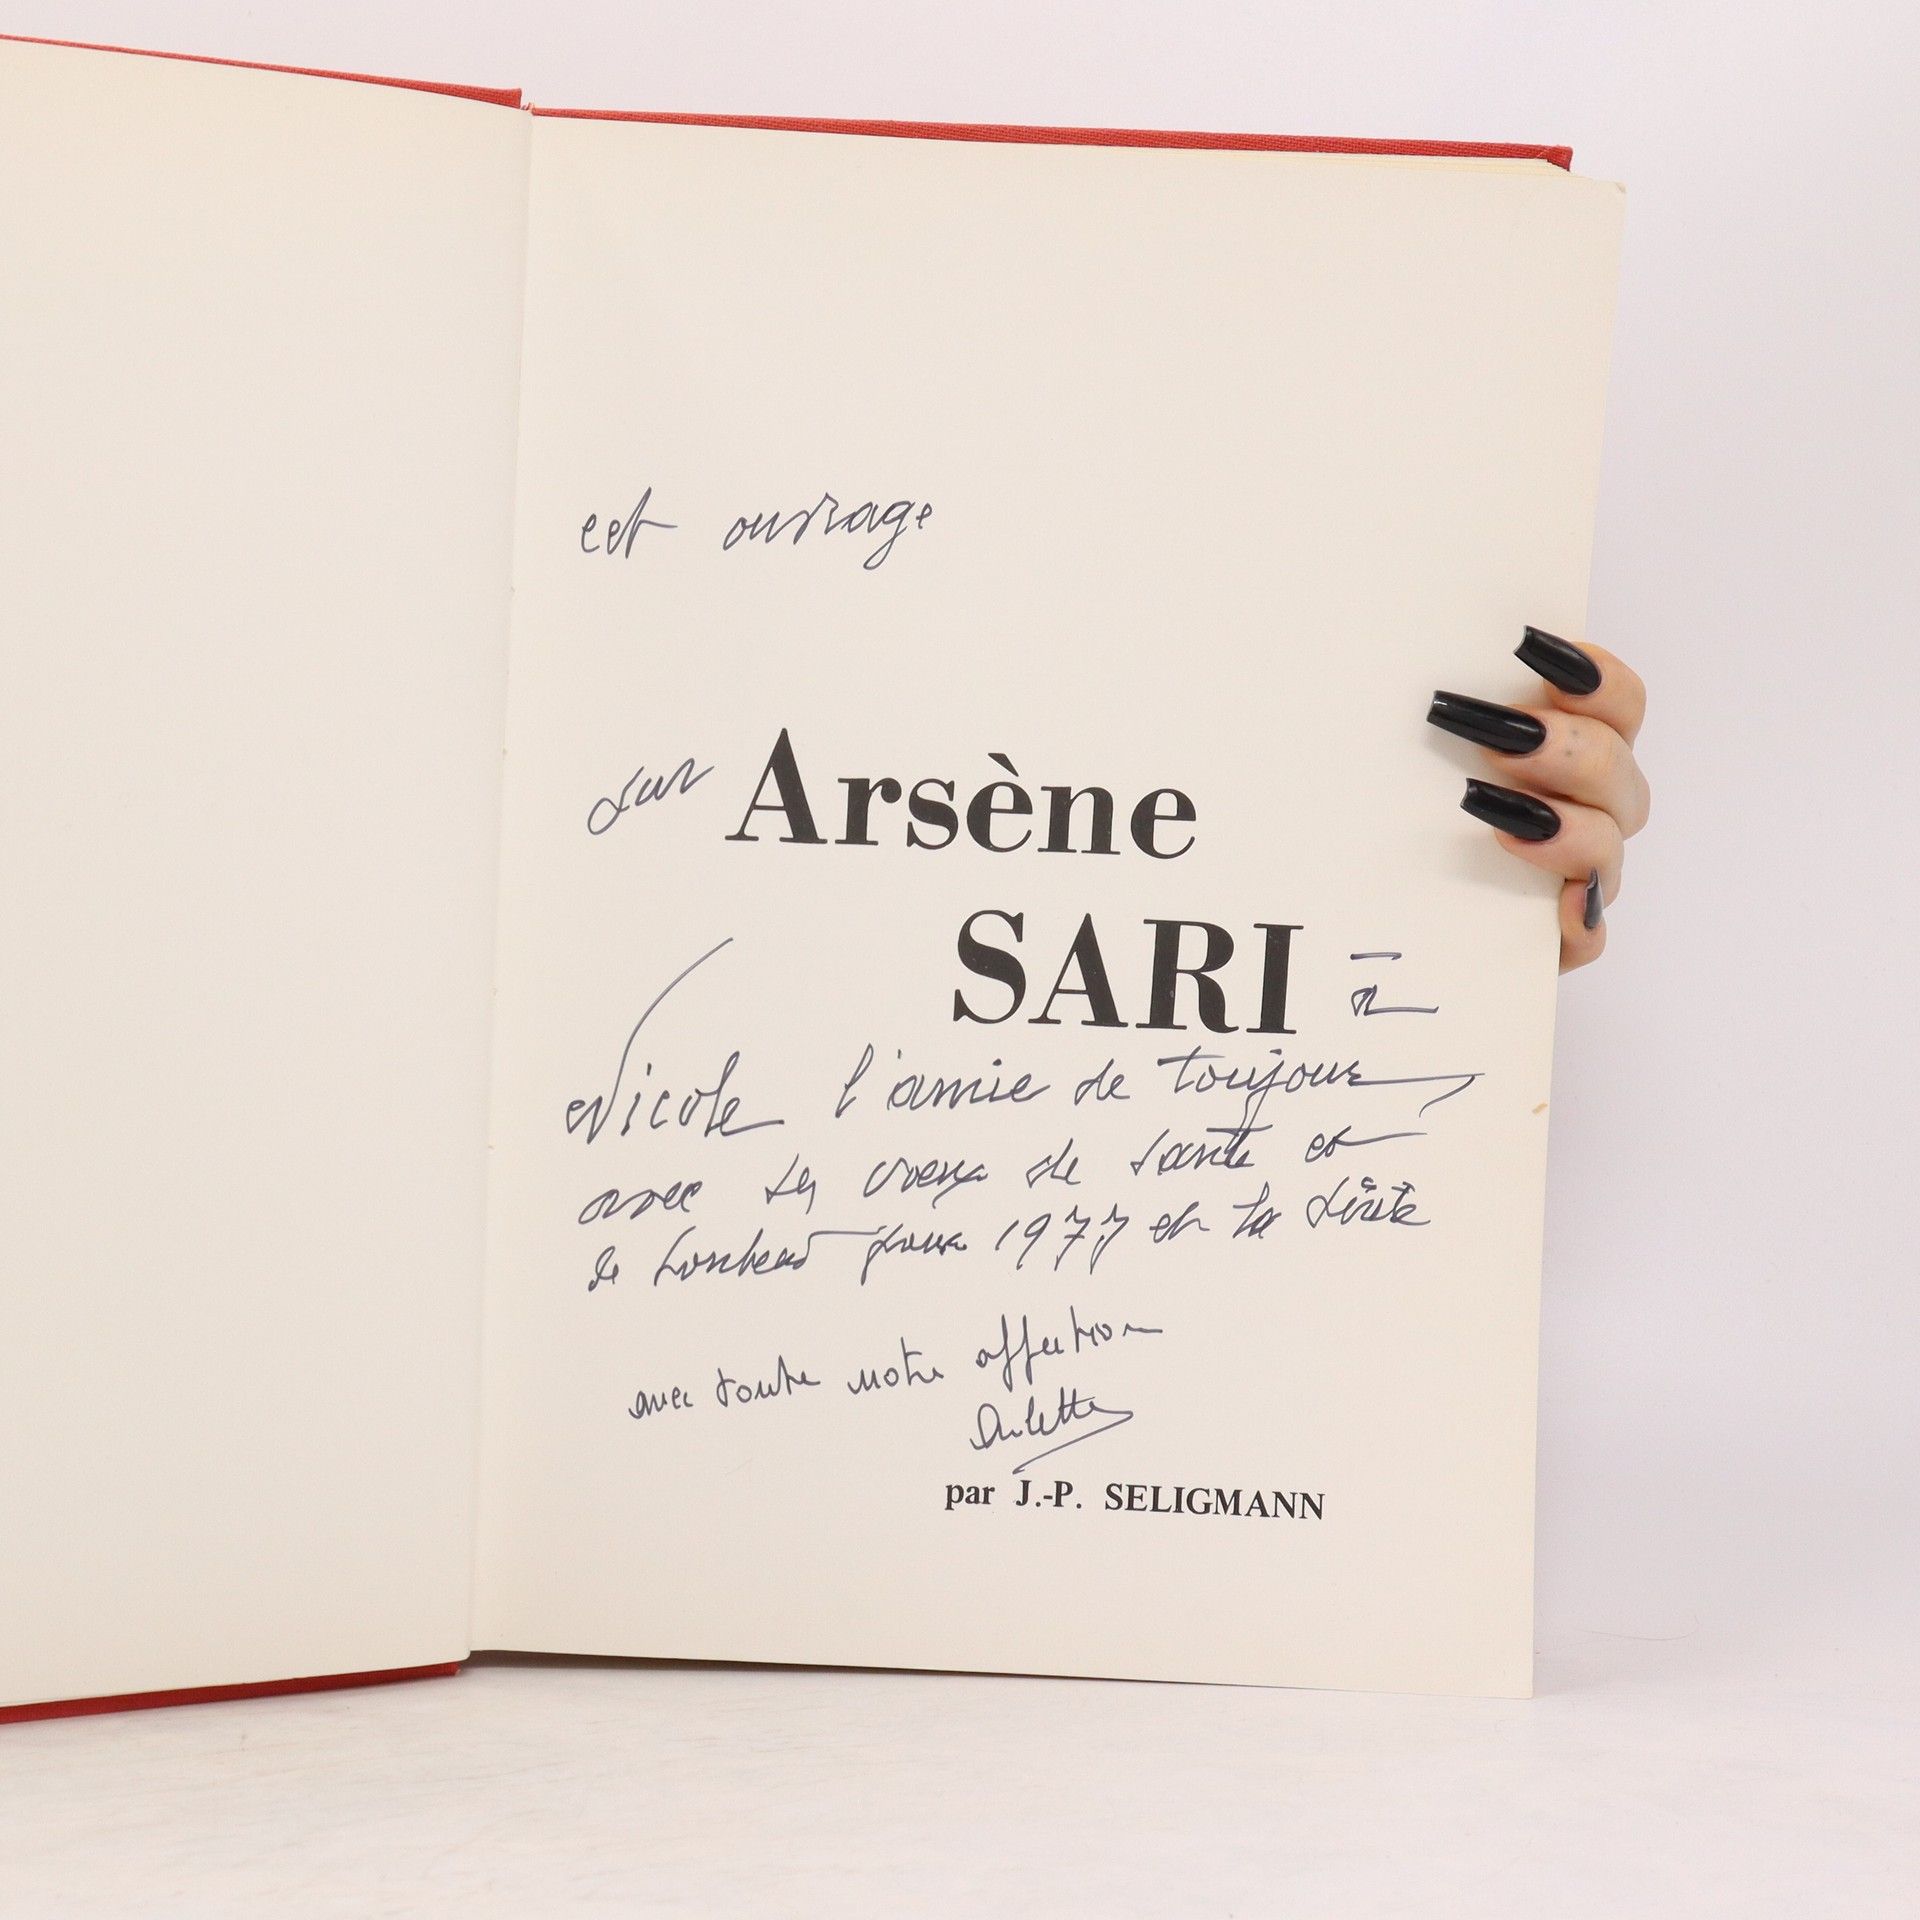 cet ouvrage
sur Arsène
SARI à
Nicole l'amie de toujours
avec les voeux de santé et
de bonheur pour 1977 et la suite
avec toute notre affection
par J.-P. SELIGMANN